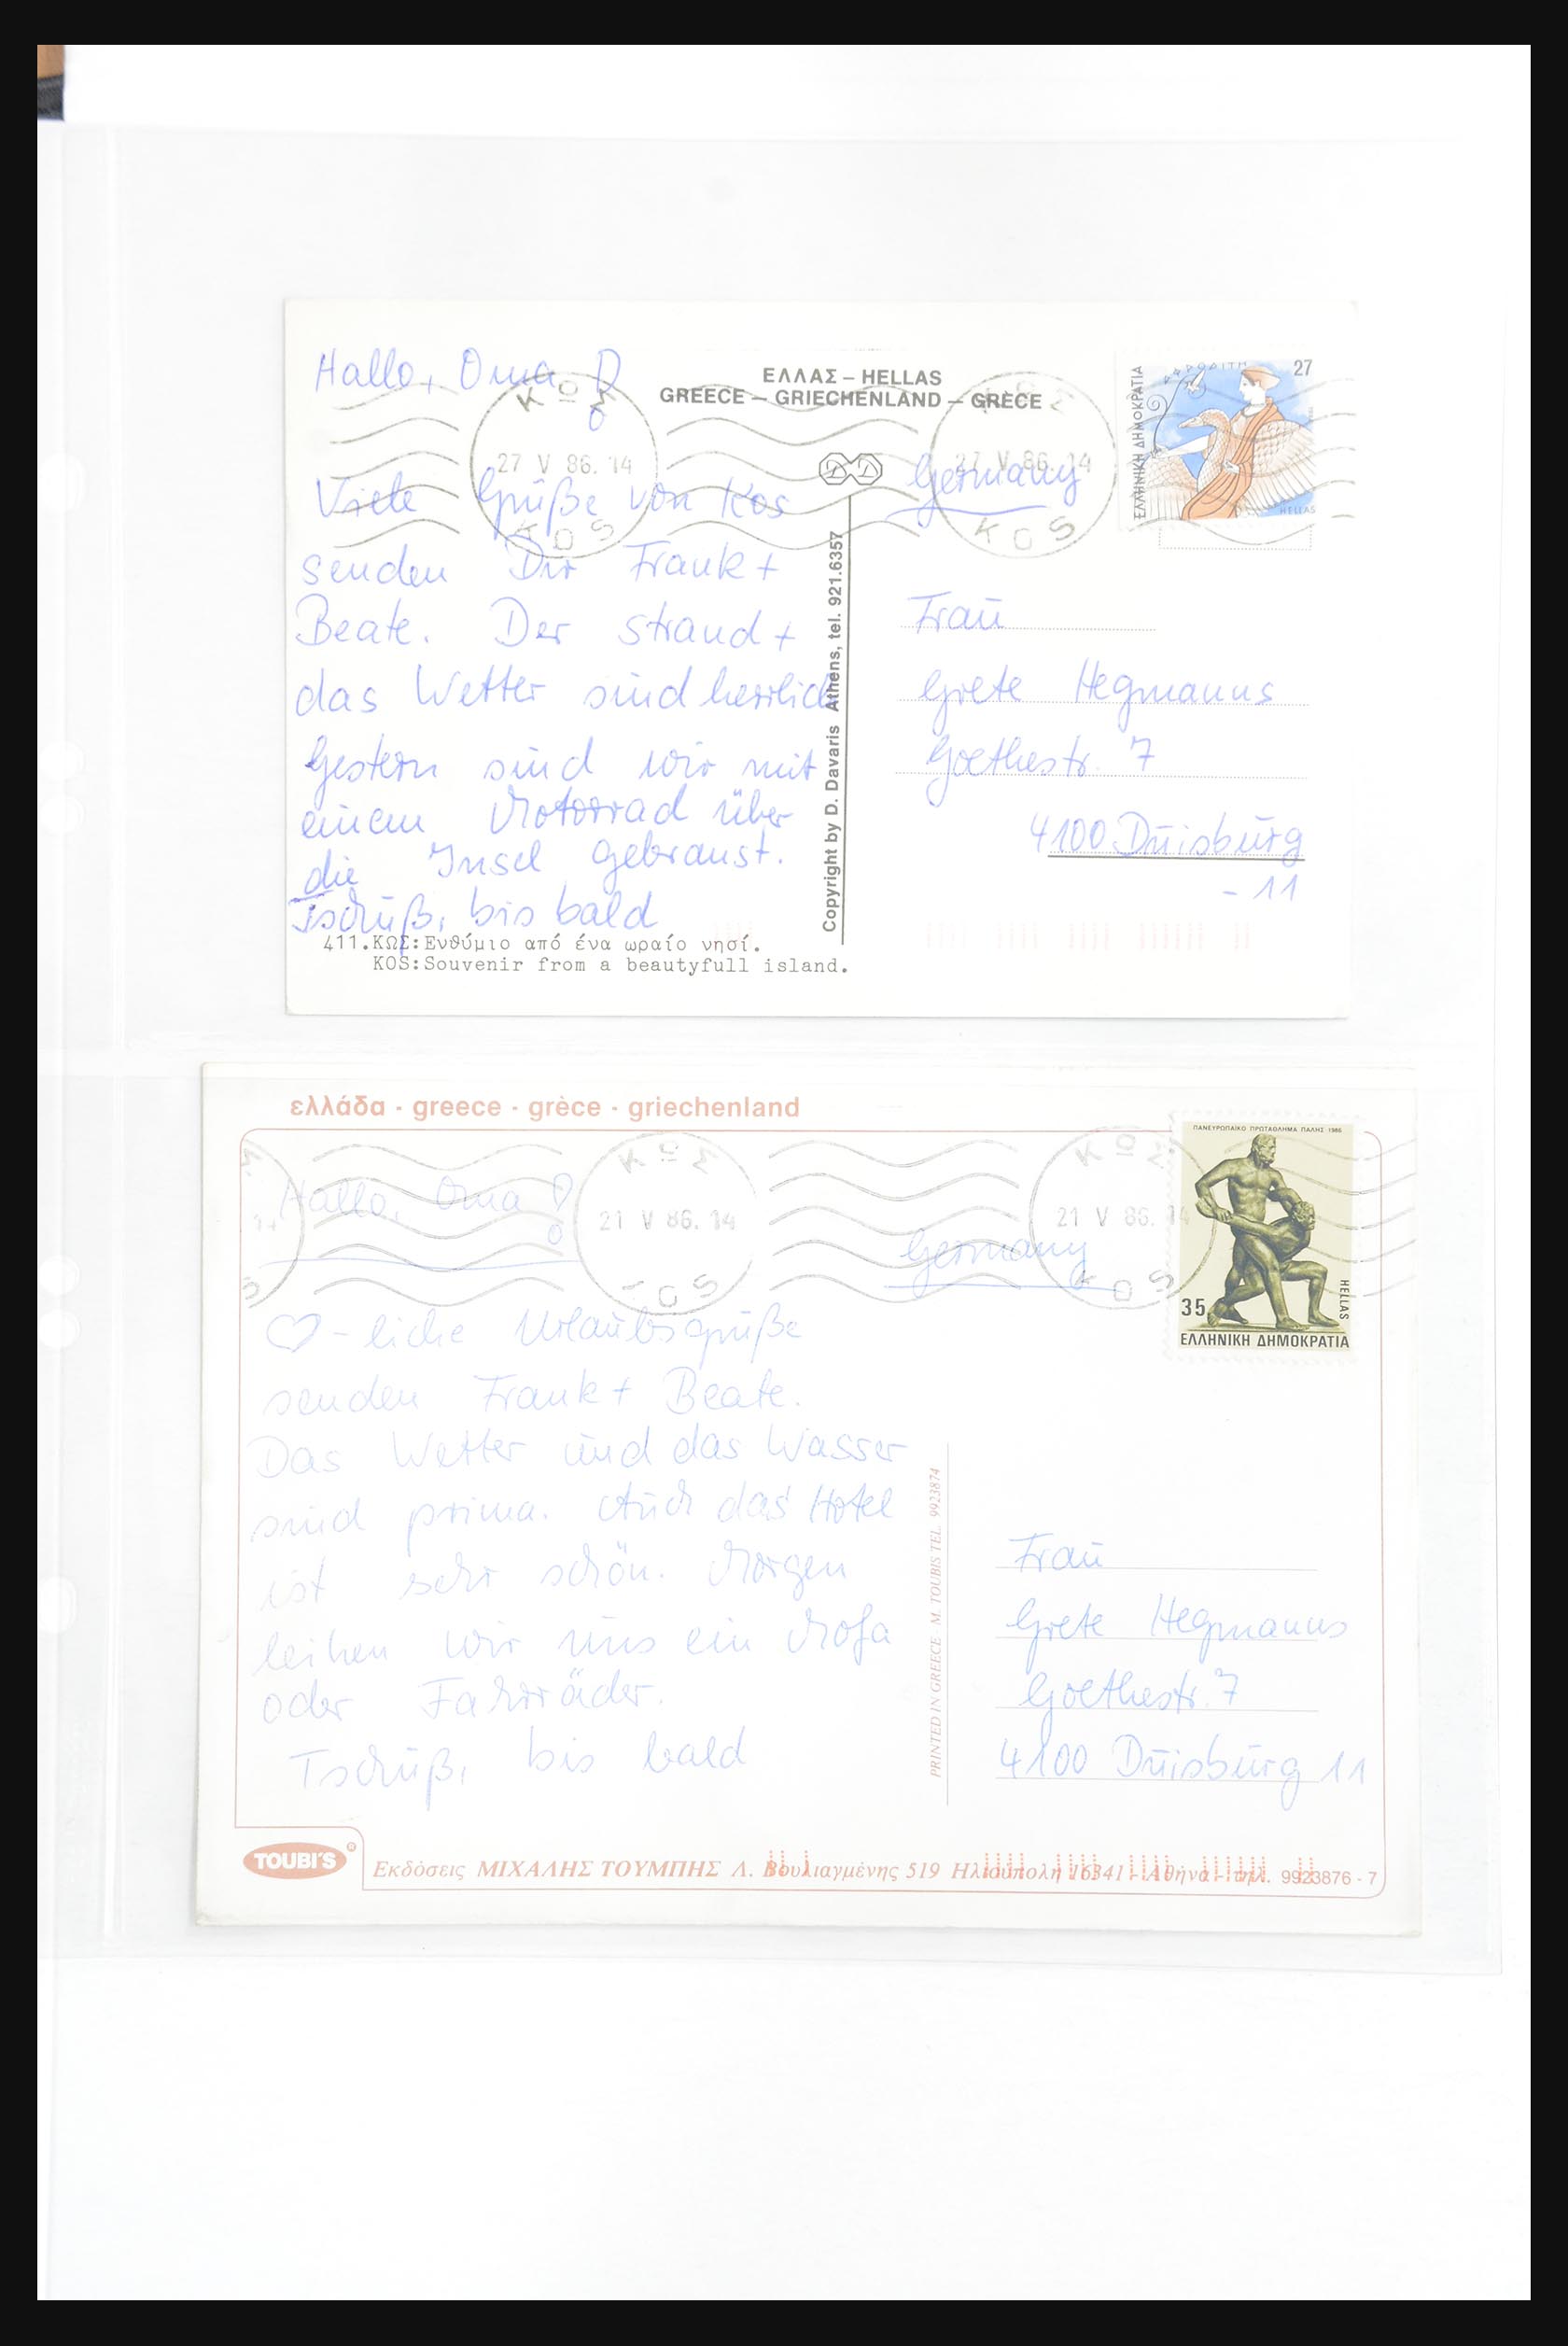 Hallo, Oma!
Viele Grüße von Kos
senden Dir Frank +
Beate. Der Strand +
das Wetter sind herrlich
Gestern sind wir mit
einem Motorrad über
die Insel gebraust.
Tschüß, bis bald
411.ΚΩΣ:Ενθύμιο από ένα ωραίο νησί.
KOS:Souvenir from a beautyfull island.
ΕΛΛΑΣ – HELLAS
GREECE – GRIECHENLAND – GRÈCE
ΚΩΣ
27 V 86. 14
KOS
ΚΩΣ
27 V 86. 14
KOS
Copyright by D. Davaris Athens, tel. 921.6357
ΕΛΛΗΝΙΚΗ ΔΗΜΟΚΡΑΤΙΑ
ΑΦΡΟΔΙΤΗ
27
HELLAS
Germany
Frau
Grete Hegmanns
Goethestr. 7
4100 Duisburg
- 11
ελλάδα - greece - grèce - griechenland
Hallo, Oma!
♡ - liche Urlaubsgrüße
senden Frank + Beate.
Das Wetter und das Wasser
sind prima. Auch das Hotel
ist sehr schön. Morgen
leihen wir uns ein Mofa
oder Fahrräder.
Tschüß, bis bald
ΚΩΣ
21 V 86. 14
KOS
ΚΩΣ
21 V 86. 14
KOS
PRINTED IN GREECE M. TOUBIS TEL. 9923874
ΠΑΝΕΥΡΩΠΑΪΚΟ ΠΡΩΤΑΘΛΗΜΑ ΠΑΛΗΣ 1986
35
HELLAS
ΕΛΛΗΝΙΚΗ ΔΗΜΟΚΡΑΤΙΑ
Germany
Frau
Grete Hegmanns
Goethestr. 7
4100 Duisburg 11
TOUBI'S ®
Εκδόσεις ΜΙΧΑΛΗΣ ΤΟΥΜΠΗΣ Λ. Βουλιαγμένης 519 Ηλιούπολη 16341 - Αθήνα - τηλ. 9923876 - 7